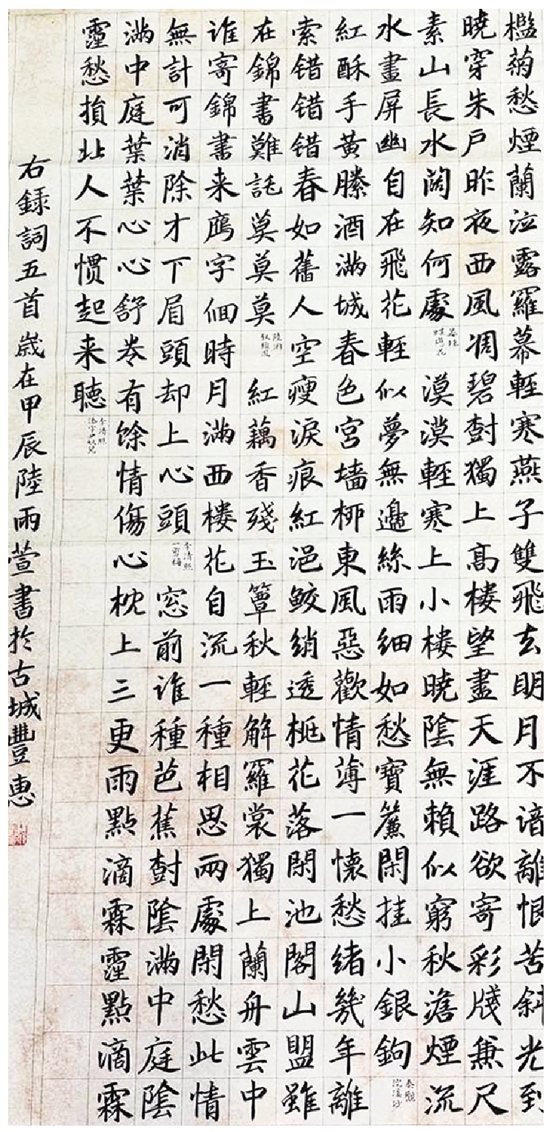 檻菊愁煙蘭泣露羅幕輕寒燕子雙飛去明月不諳離恨苦斜光到
曉穿朱戶昨夜西風凋碧樹獨上高樓望盡天涯路欲寄彩牋兼尺
素山長水闊知何處 晏殊 蝶戀花 漠漠輕寒上小樓曉陰無賴似窮秋澹煙流
水畫屏幽自在飛花輕似夢無邊絲雨細如愁寶簾閑挂小銀鉤 秦觀 浣溪沙
紅酥手黃縢酒滿城春色宮墻柳東風惡歡情薄一懷愁緒幾年離
索错错错春如舊人空瘦淚痕紅浥鮫綃透桃花落閑池閣山盟雖
在錦書難託莫莫莫 陸游 釵頭鳳 紅藕香殘玉簟秋輕解羅裳獨上蘭舟雲中
谁寄錦書来鴈字佪時月滿西樓花自流一種相思兩處閑愁此情
無計可消除才下眉頭却上心頭 李清照 一剪梅 窓前谁種芭蕉樹陰滿中庭陰
滿中庭葉葉心心舒卷有馀情傷心枕上三更雨點滴霖霪點滴霖
霪愁損北人不慣起来聽 李清照 添字丑奴兒
右録詞五首歲在甲辰陸雨萱書於古城豐惠